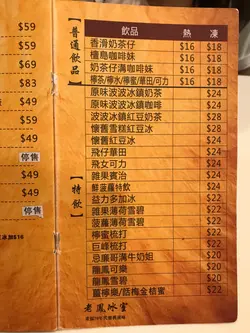 $59
$59
$69
$83
$49
$49
停售
$49
停售
飲品 熱 凍
普通飲品
香滑奶茶仔 $16 $18
檀島咖啡妹 $16 $18
奶茶仔溝咖啡妹 $16 $18
檸茶/檸水/檸蜜/華田/可力 $16 $18
特飲
原味波波冰鎮奶茶 $22
原味波波冰鎮咖啡 $22
波波冰鎮紅豆奶茶 $28
懷舊雪糕紅豆冰 $28
懷舊紅豆冰 $24
飛仔華田 $24
飛女可力 $24
雜果賓治 $24
鮮菠蘿特飲 $24
益力多加冰 $22
雜果薄荷雪碧 $24
菠蘿薄荷雪碧 $24
檸蜜梳打 $22
巨峰梳打 $22
忌廉哥溝牛奶姐 $22
龍鳳可樂 $22
龍鳳雪碧 $22
薑檸樂/話梅金桔蜜 $22
老鳳冰室